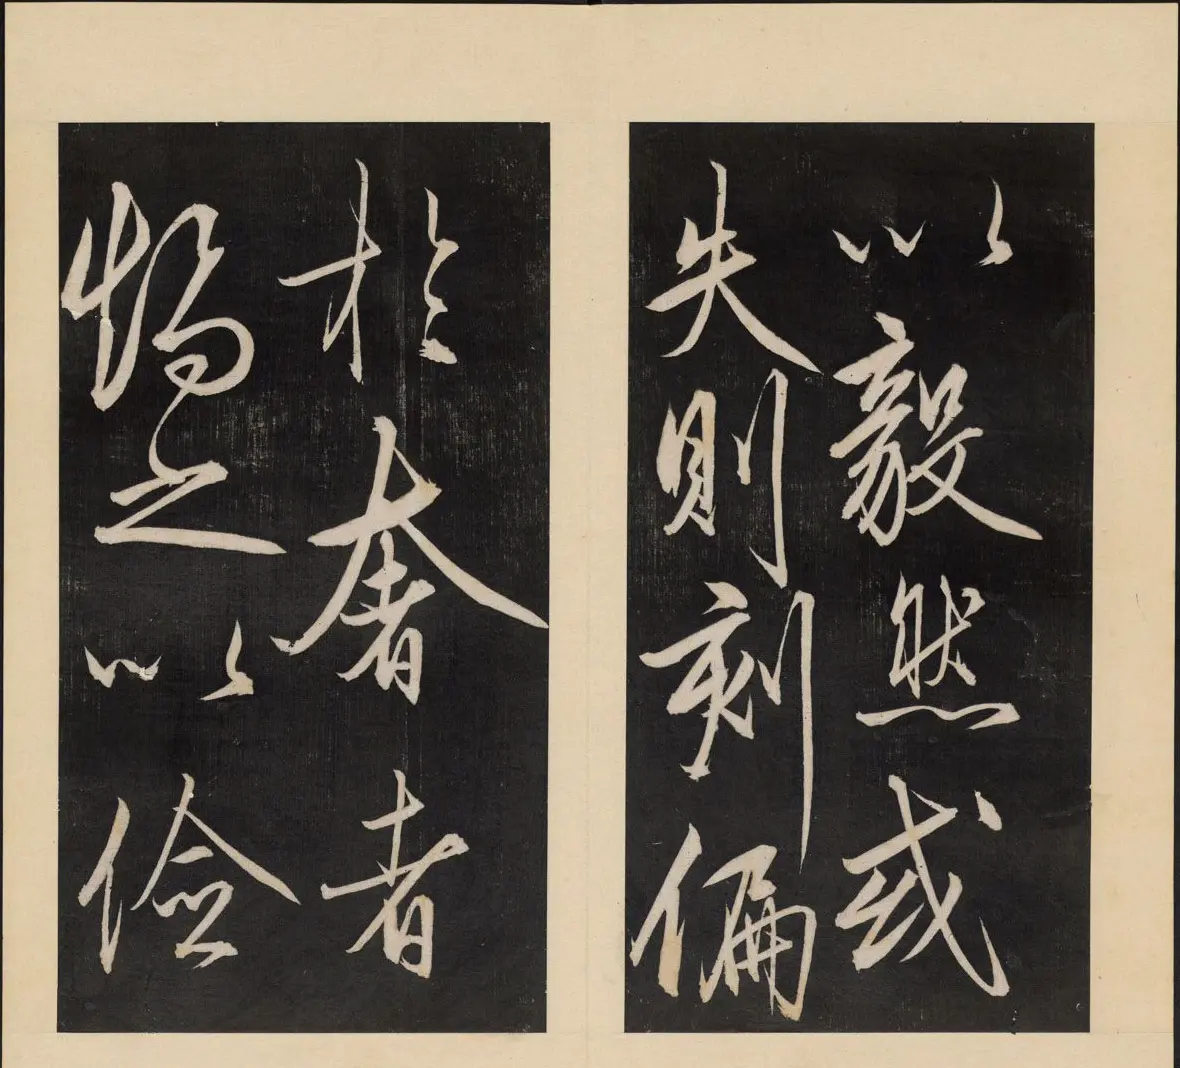 以毅然或
失則刻偏
於奢者
矯之以儉